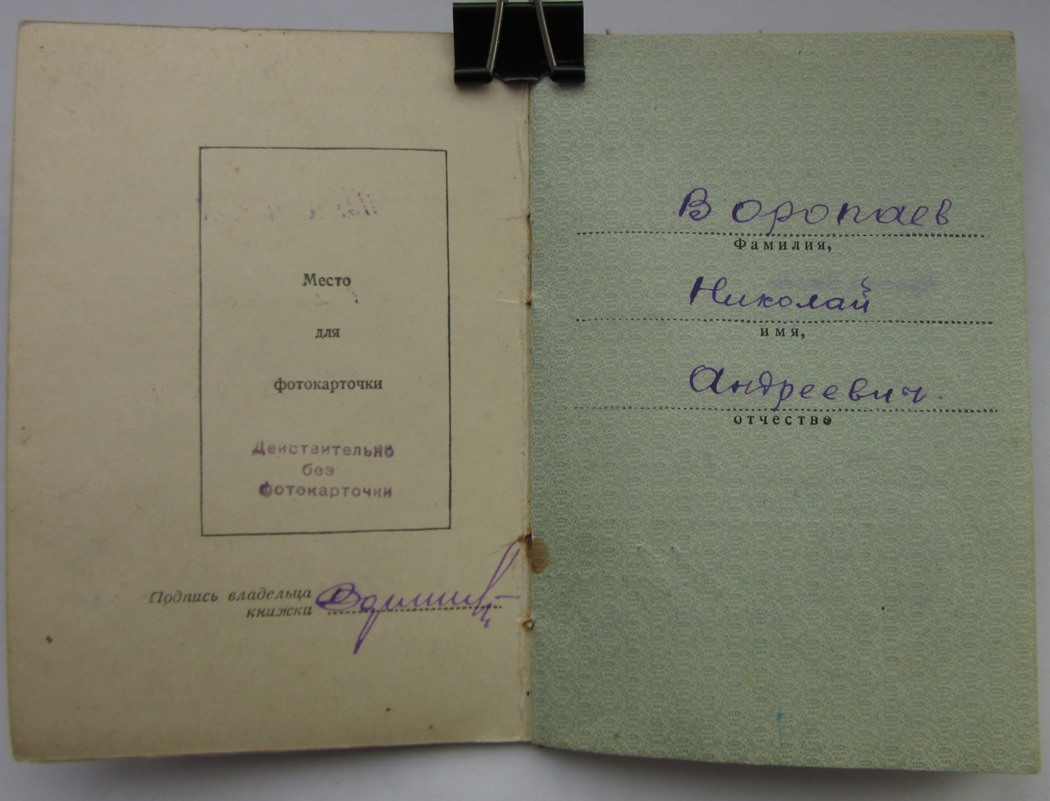 Место
для
фотокарточки
Действительно
без
фотокарточки
Подпись владельца
книжки
Воропаев
Фамилия,
Николай
имя,
Андреевич
отчество